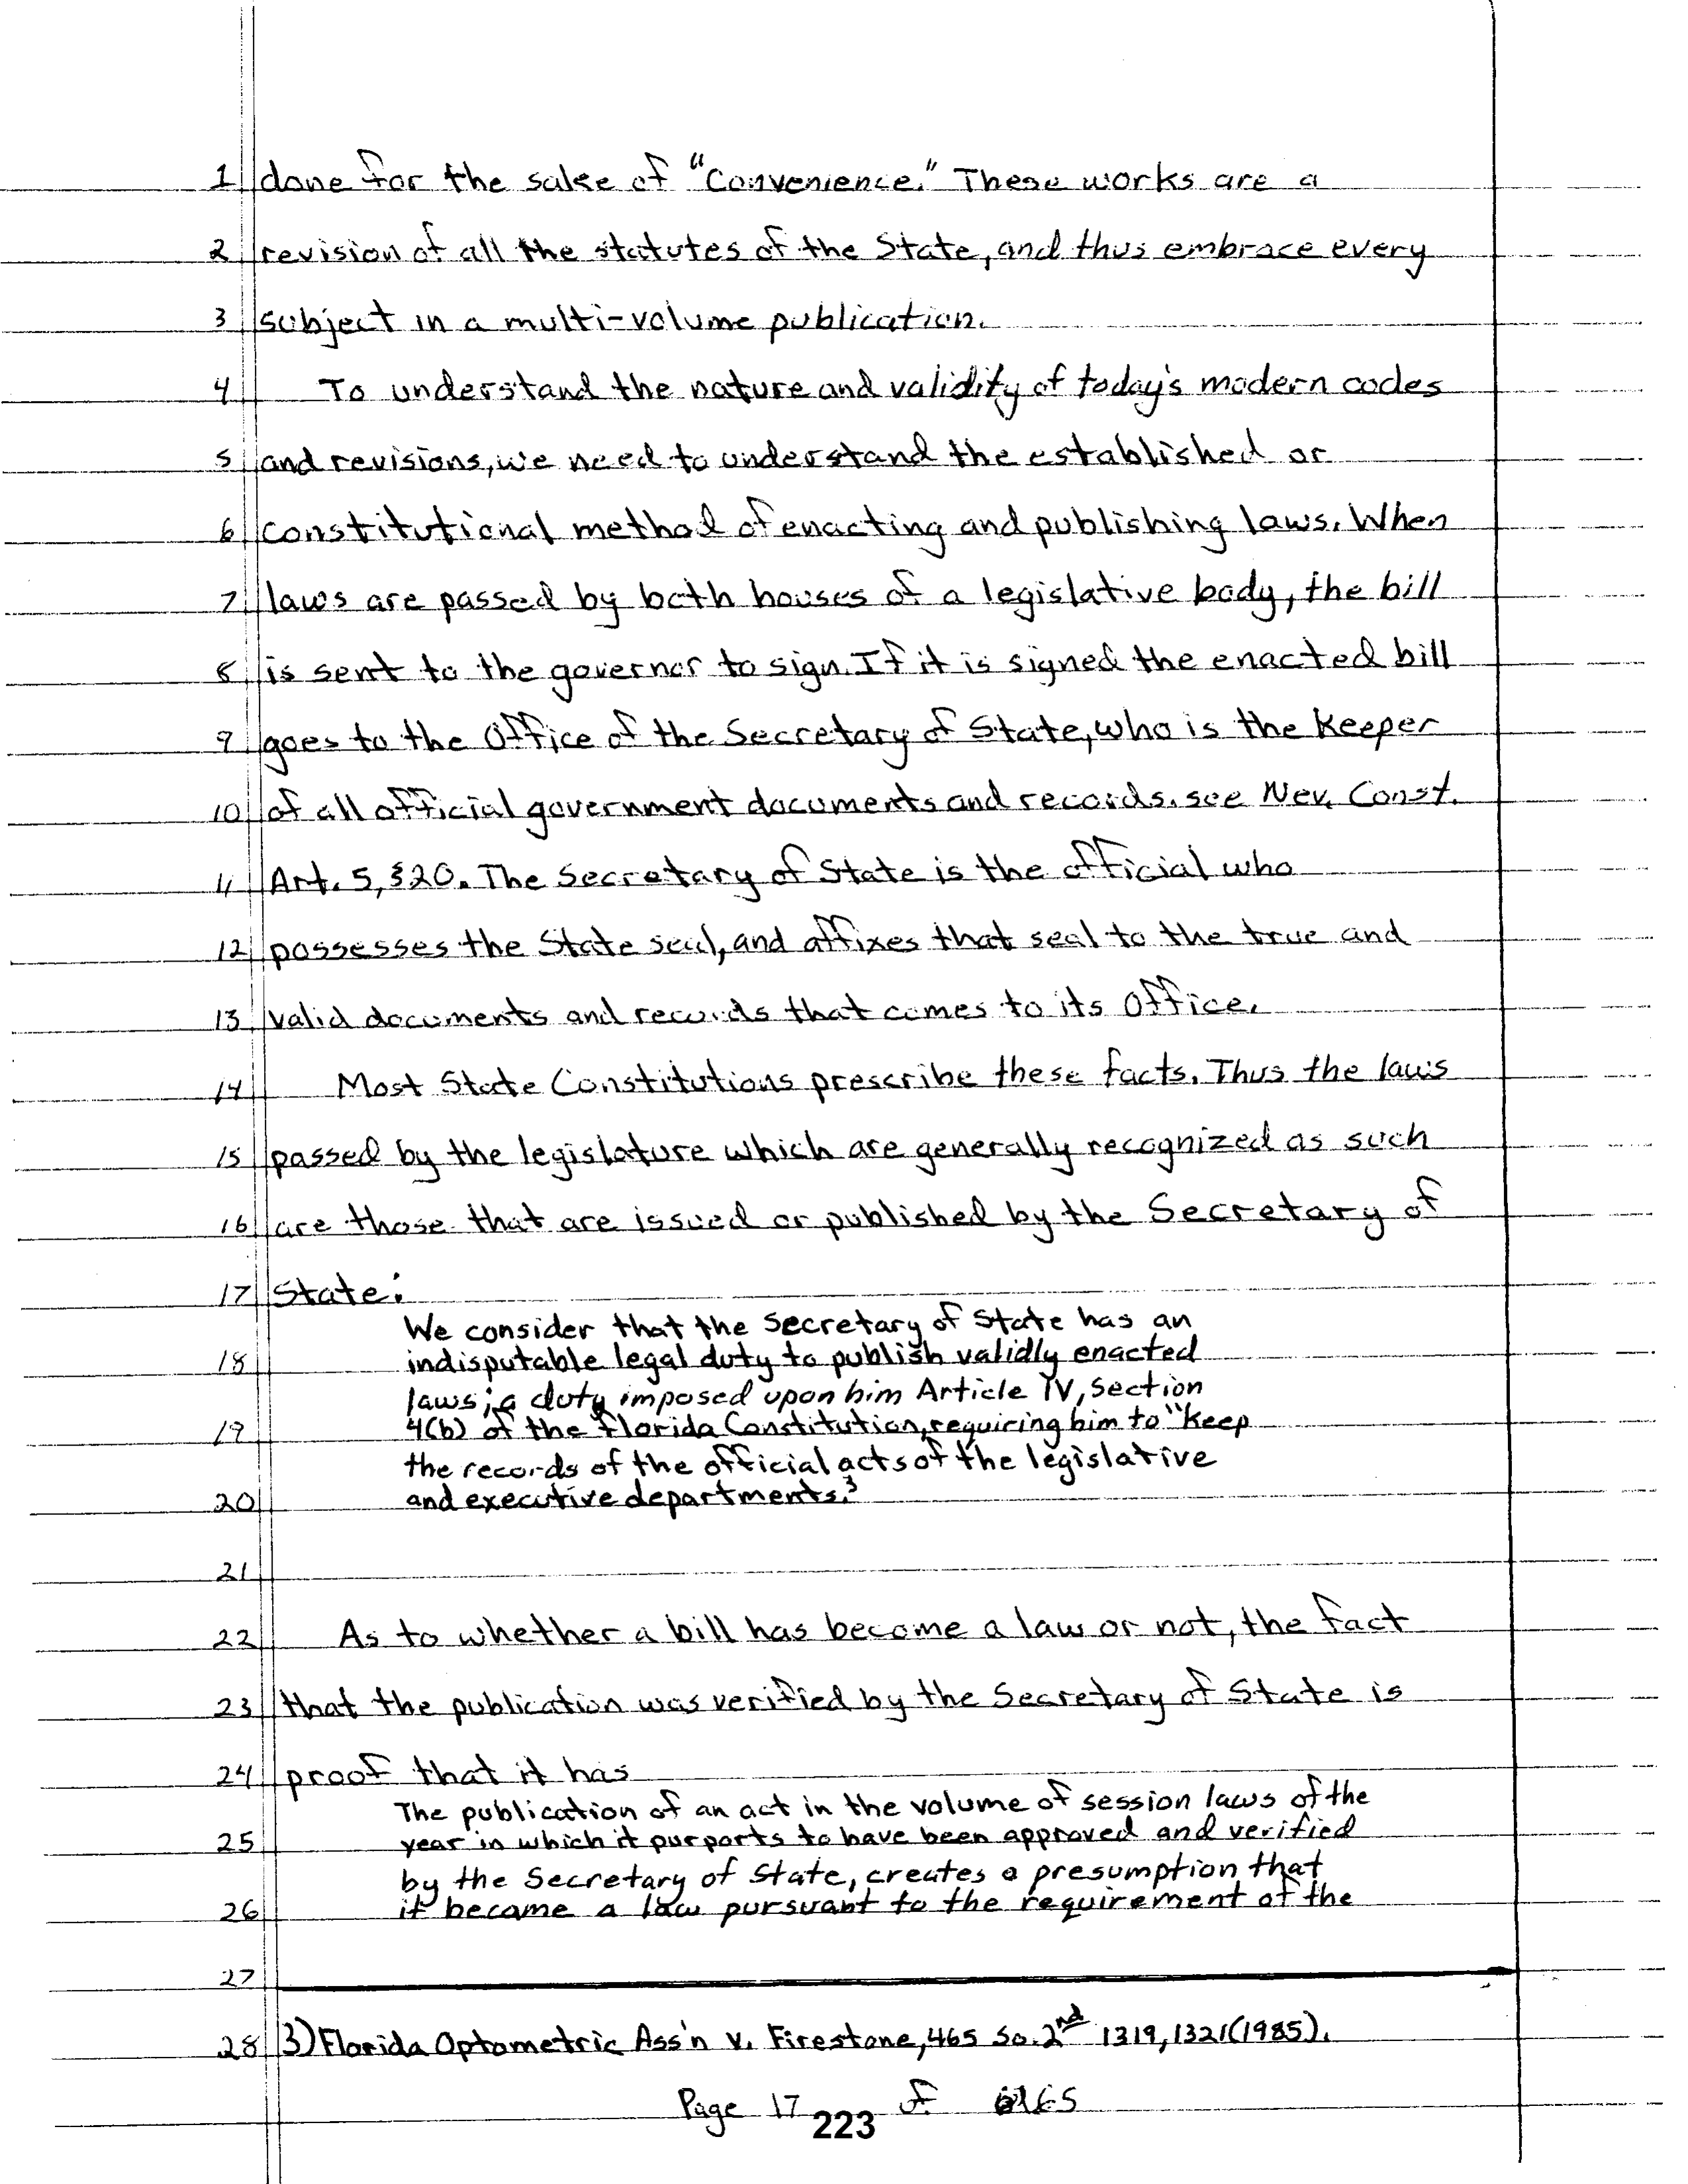 1 done for the sake of "Convenience." These works are a
2 revision of all the statutes of the State, and thus embrace every
3 subject in a multi-volume publication.
4 To understand the nature and validity of today's modern codes
5 and revisions, we need to understand the established or
6 constitutional method of enacting and publishing laws. When
7 laws are passed by both houses of a legislative body, the bill
8 is sent to the governor to sign. If it is signed the enacted bill
9 goes to the Office of the Secretary of State, who is the Keeper
10 of all official government documents and records. see Nev. Const.
11 Art. 5, §20. The Secretary of State is the official who
12 possesses the State seal, and affixes that seal to the true and
13 valid documents and records that comes to its Office.
14 Most State Constitutions prescribe these facts. Thus the laws
15 passed by the legislature which are generally recognized as such
16 are those that are issued or published by the Secretary of
17 State:
We consider that the Secretary of State has an
18 indisputable legal duty to publish validly enacted
laws; a duty imposed upon him Article IV, Section
19 4(b) of the Florida Constitution, requiring him to "Keep
the records of the official acts of the legislative
20 and executive departments.3
21
22 As to whether a bill has become a law or not, the fact
23 that the publication was verified by the Secretary of State is
24 proof that it has
The publication of an act in the volume of session laws of the
25 year in which it purports to have been approved and verified
by the Secretary of State, creates a presumption that
26 it became a law pursuant to the requirement of the
27
28 3) Florida Optometric Ass'n v. Firestone, 465 So. 2nd 1319, 1321 (1985).
Page 17 of
223